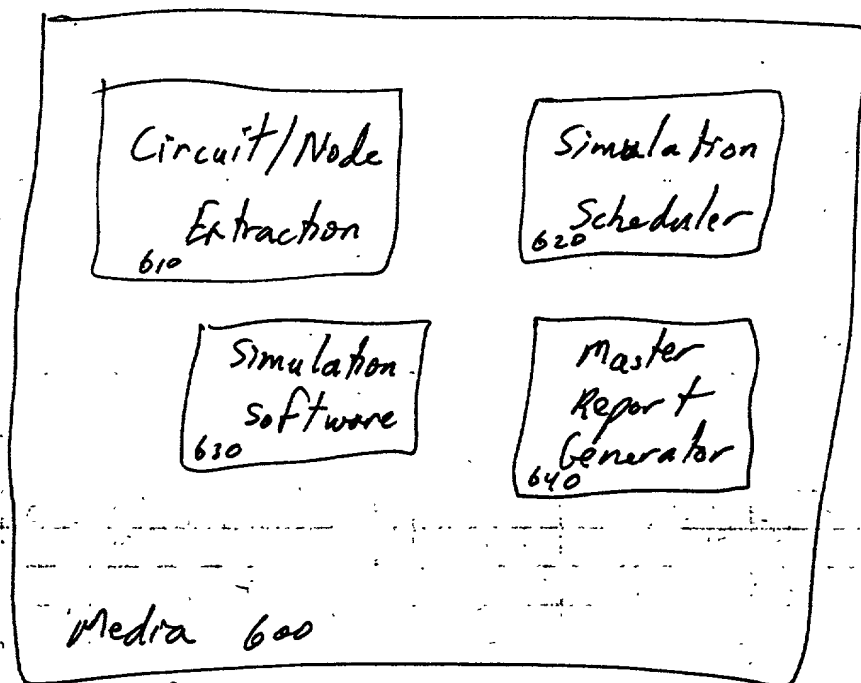 Circuit/Node
Extraction
610
Simulation
Scheduler
620
Simulation
Software
630
Master
Report
Generator
640
Media 600